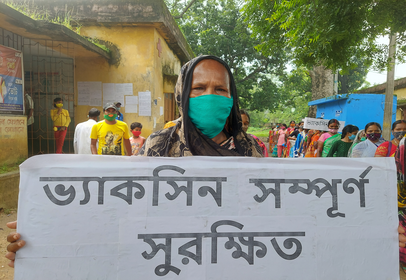 ভ্যাকসিন সম্পূর্ণ
সুরক্ষিত